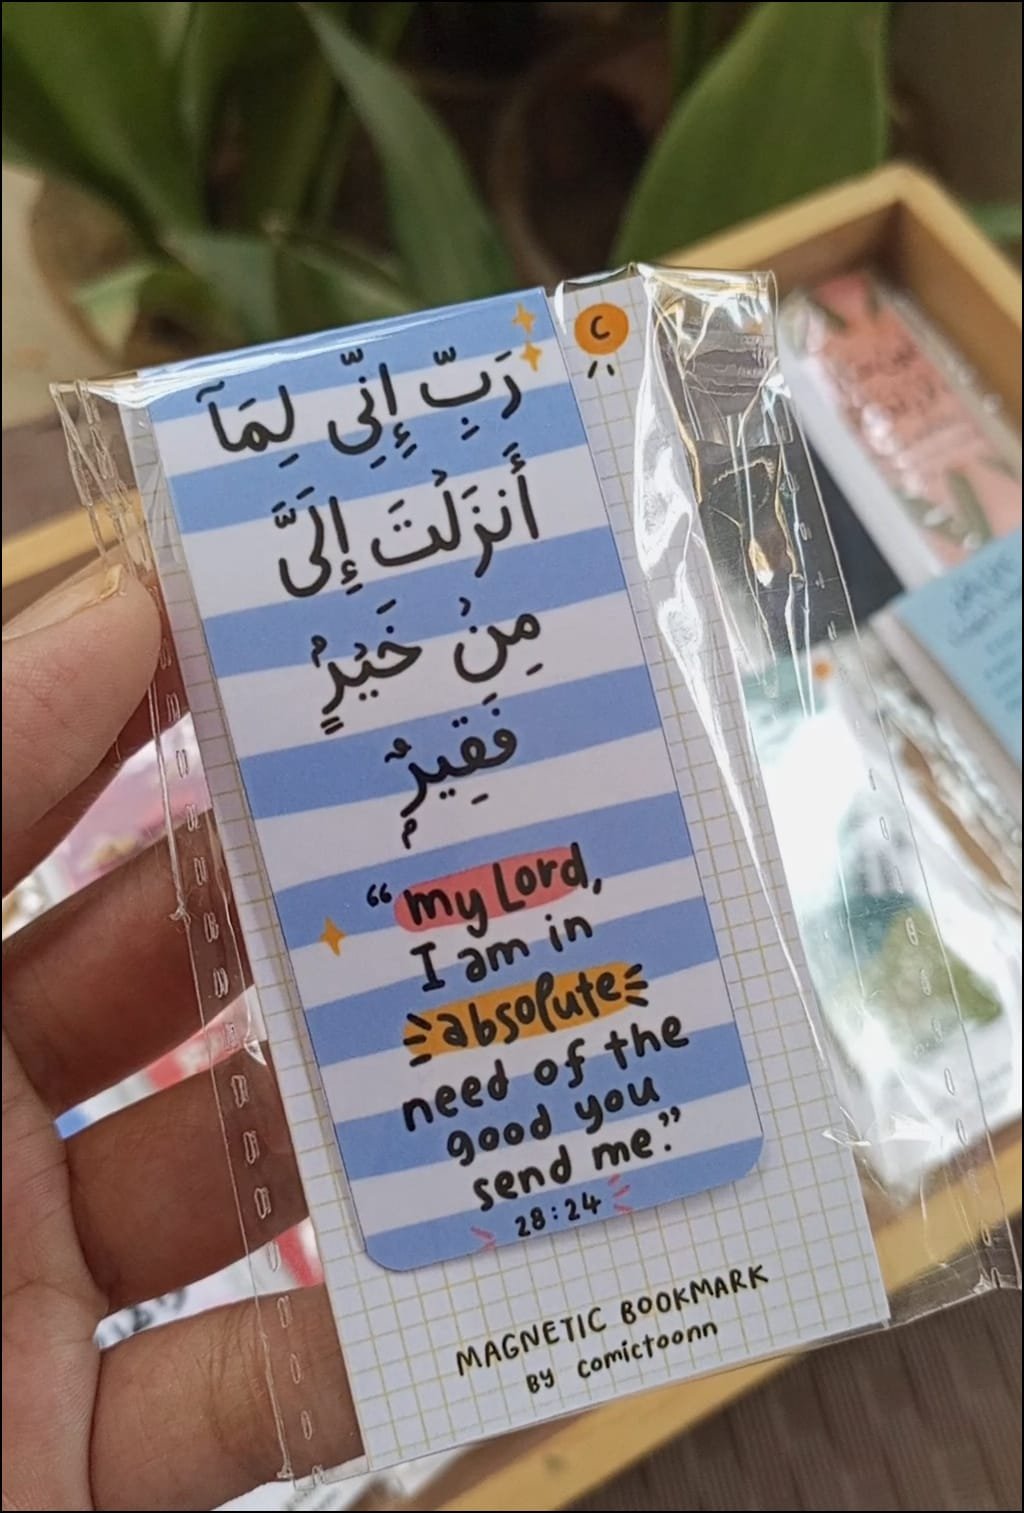 C
رَبِّ إِنِّي لِمَآ
أَنزَلْتَ إِلَىَّ
مِنْ خَيْرٍۢ
فَقِيرٌۭ
“my Lord,
I am in
absolute
need of the
good you
send me.”
28:24
MAGNETIC BOOKMARK
BY comictoonn